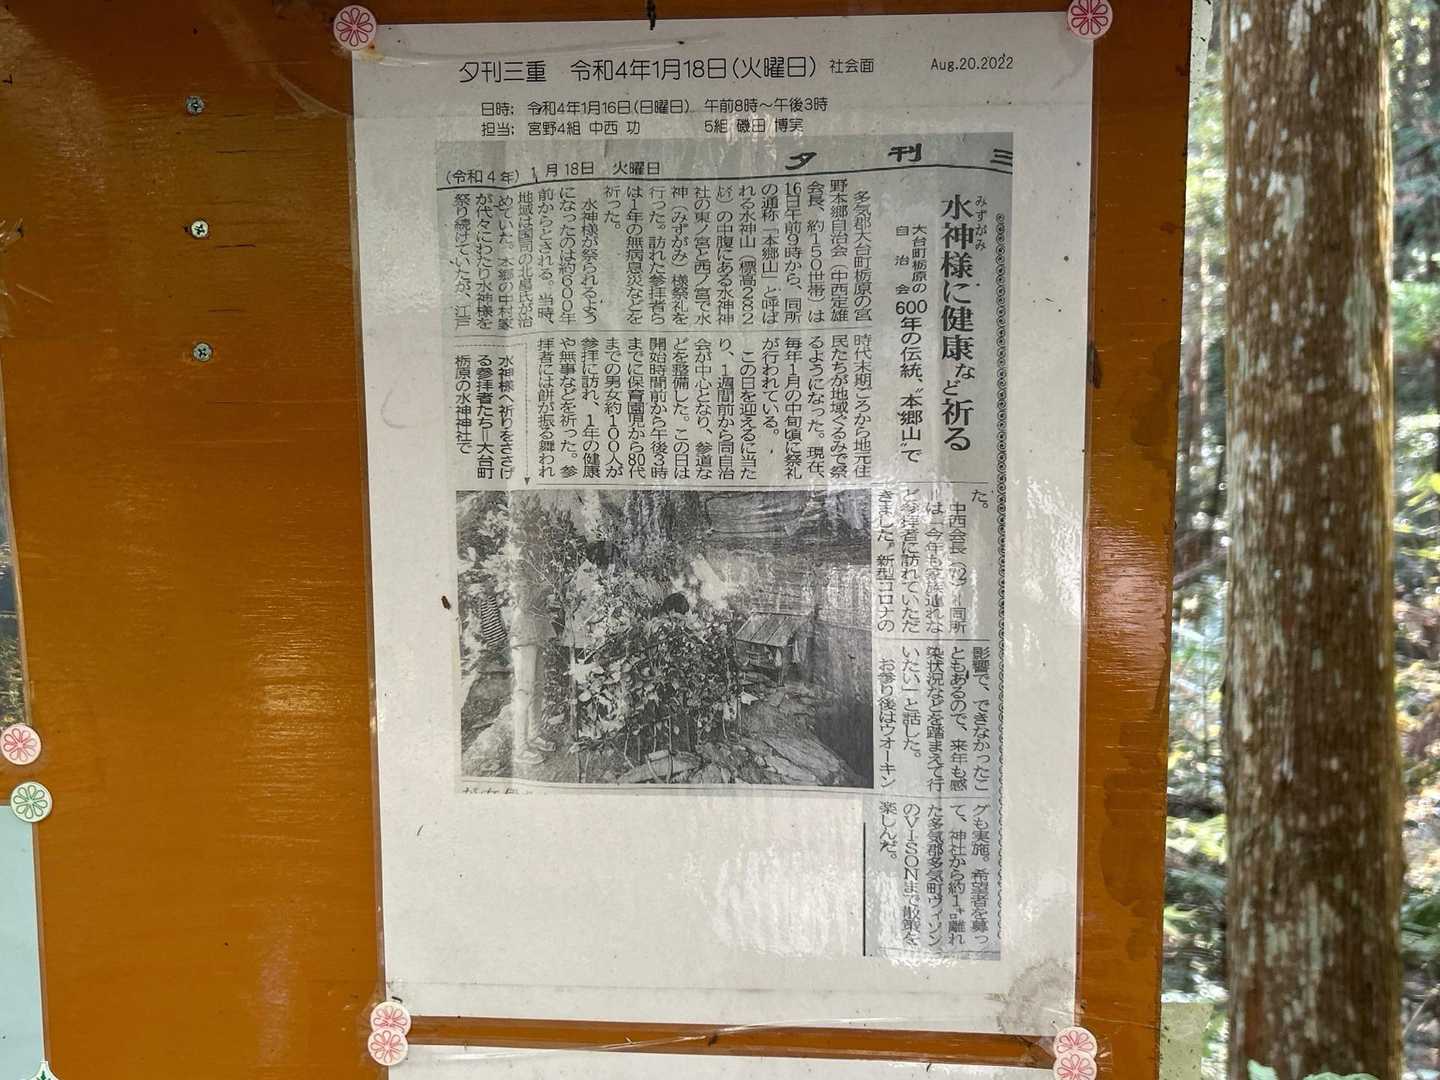 夕刊三重 令和4年1月18日(火曜日) 社会面 Aug.20.2022
日時: 令和4年1月16日(日曜日) 午前8時~午後3時
担当: 宮野4組 中西 功 5組 磯田 博実
夕刊三
(令和4年) 1月18日 火曜日
みずがみ
水神様に健康など祈る
大台町栃原の
自治会
600年の伝統、〝本郷山〟で
多気郡大台町栃原の宮
野本郷自治会(中西定雄
会長、約150世帯)は
16日午前9時から、同所
の通称「本郷山」と呼ば
れる水神山(標高282
㍍)の中腹にある水神神
社の東ノ宮と西ノ宮で水
神(みずがみ)様祭礼を
行った。訪れた参拝者ら
は1年の無病息災などを
祈った。
水神様が祭られるよう
になったのは約600年
前からとされる。当時、
地域は国司の北畠氏が治
めていた。本郷の中村家
が代々にわたり水神様を
祭り続けていたが、江戸
時代末期ごろから地元住
民たちが地域ぐるみで祭
るようになった。現在、
毎年1月の中旬頃に祭礼
が行われている。
この日を迎えるに当た
り、1週間前から同自治
会が中心となり、参道な
どを整備した。この日は
開始時間前から午後3時
までに保育園児から80代
までの男女約100人が
参拝に訪れ、1年の健康
や無事などを祈った。参
拝者には餅が振る舞われ
水神様へ祈りをささげ
る参拝者たち=大台町
栃原の水神神社で
た。
中西会長(72)=同所
=は「今年も家族連れな
ど参拝者に訪れていただ
きました。新型コロナの
影響で、できなかったこ
ともあるので、来年も感
染状況などを踏まえて行
いたい」と話した。
お参り後はウオーキン
グも実施。希望者を募っ
て、神社から約1㌔離れ
た多気郡多気町ヴィソン
のVISONまで散策を
楽しんだ。